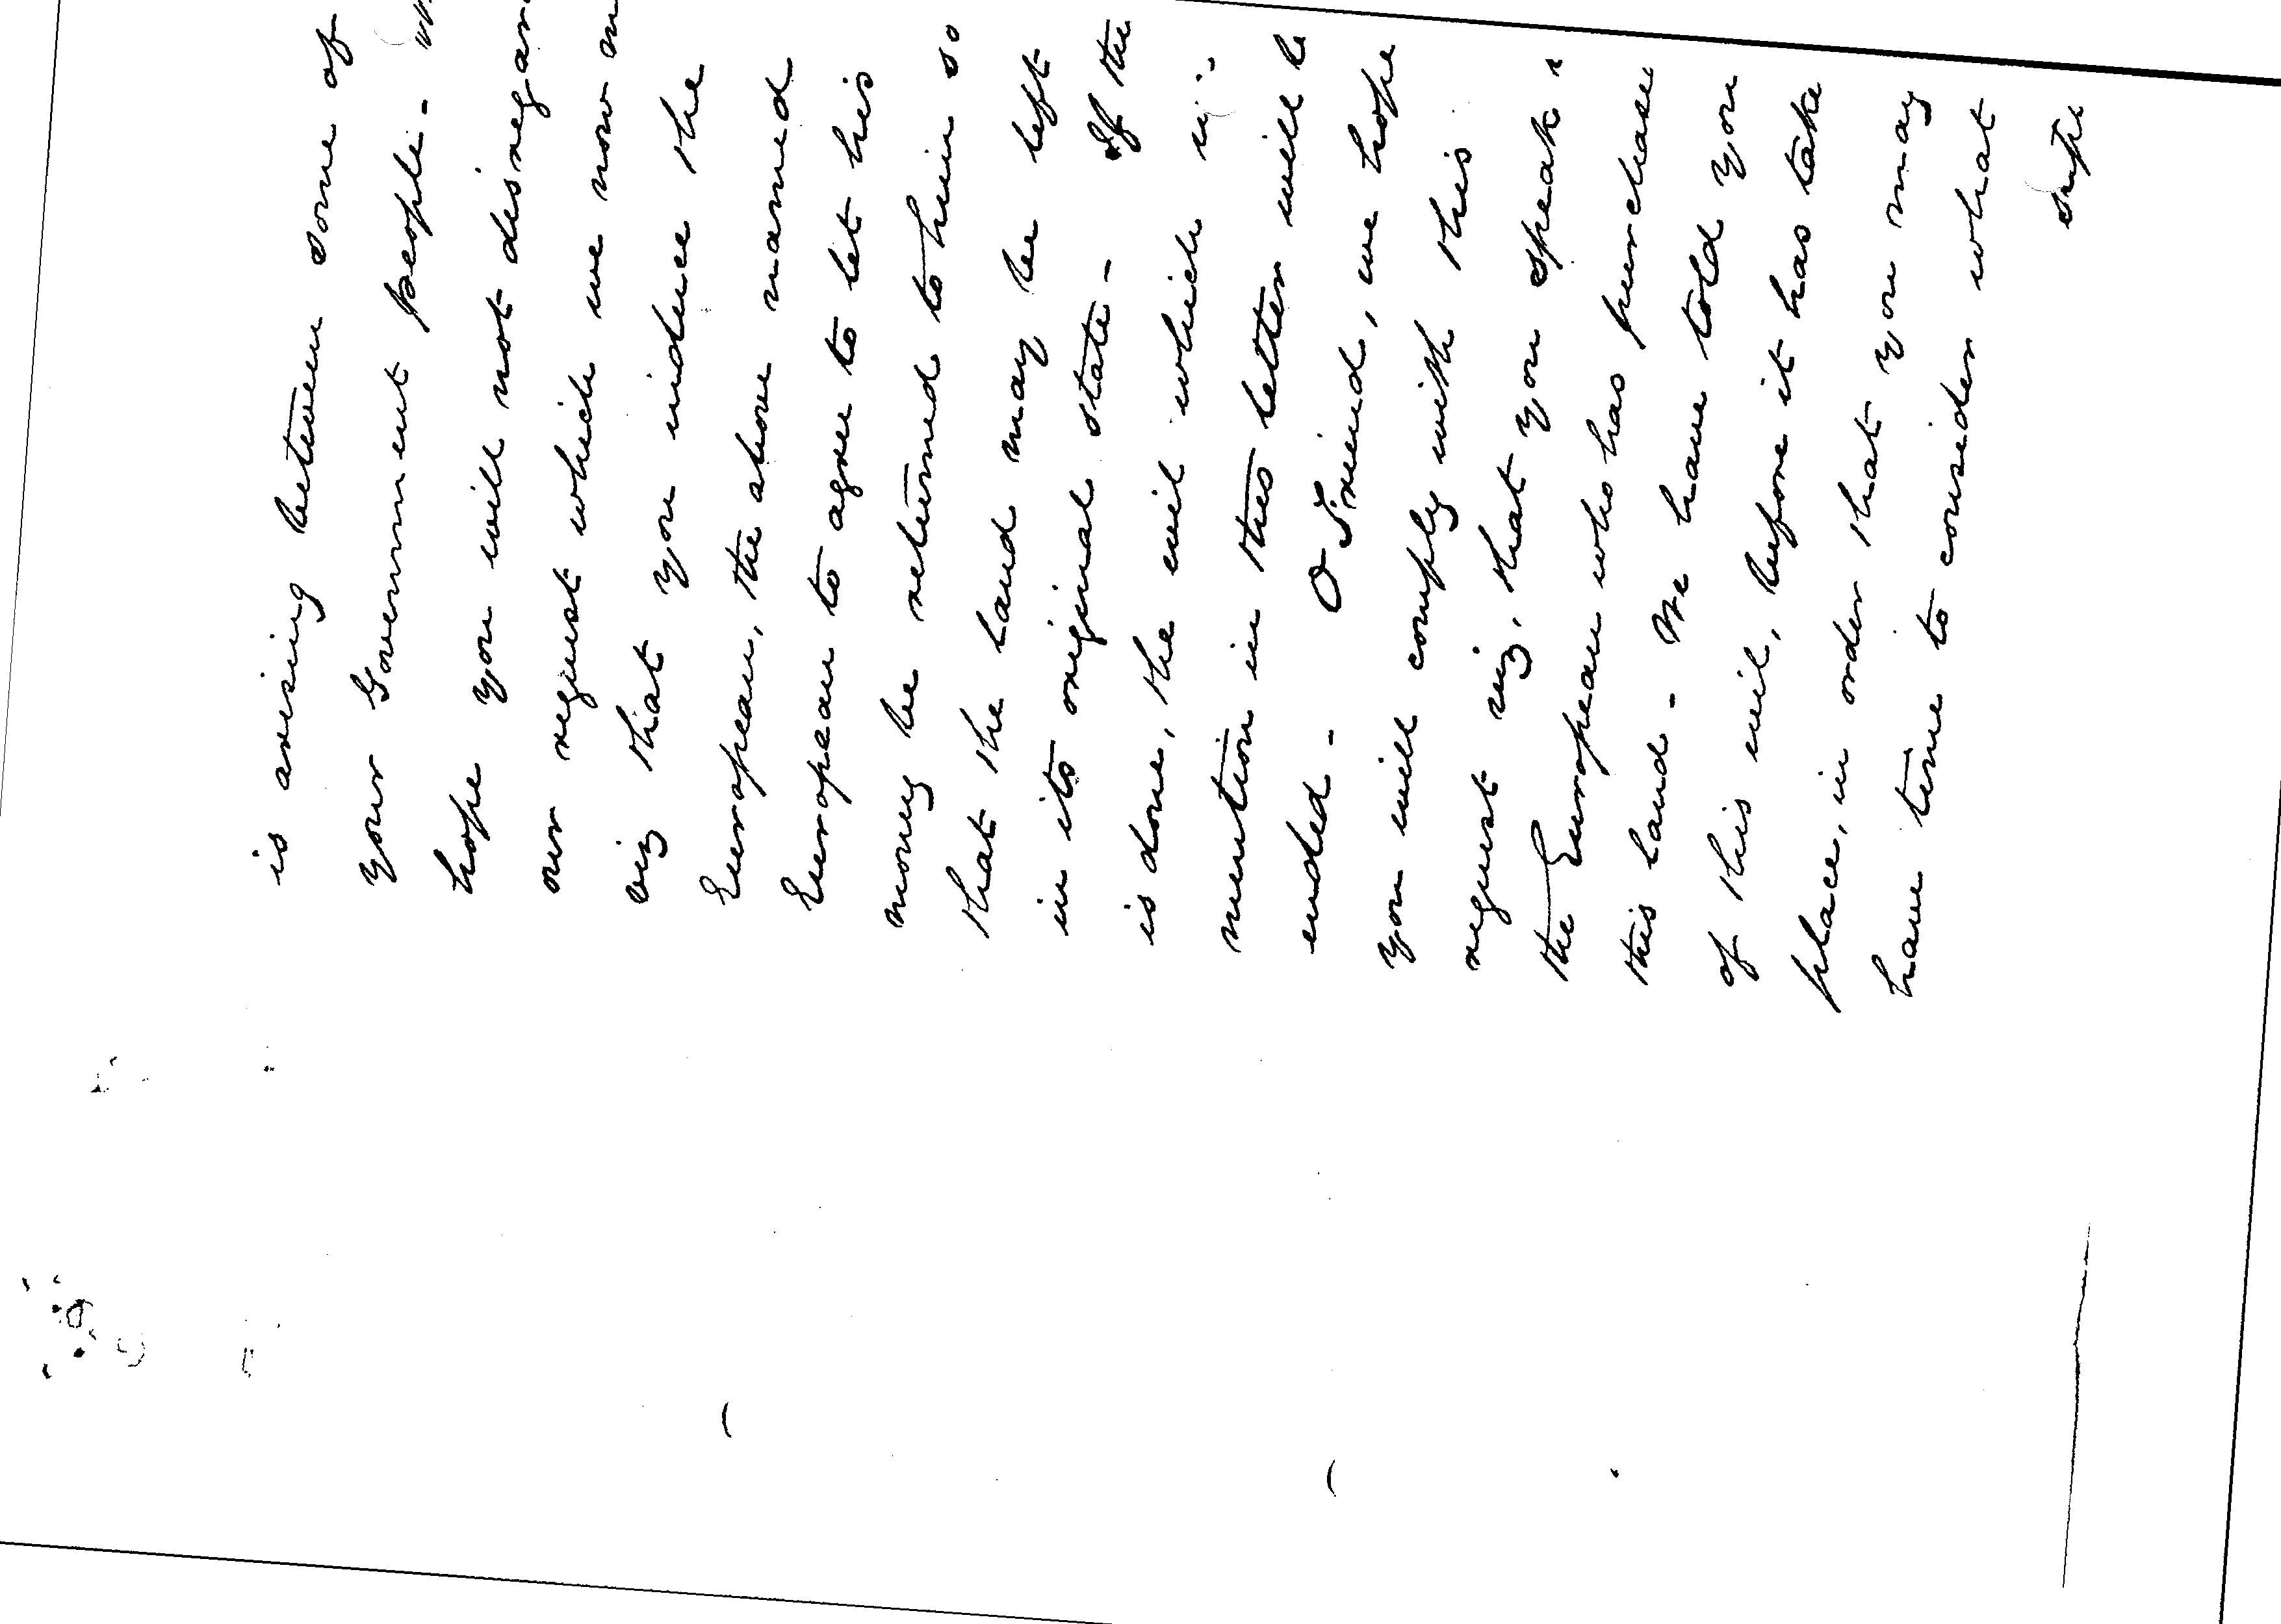 is arising between some of
your Government people - 
hope you will not disregar
our request which we now
viz that you induce the
European, the above named
European to agree to let his
money be returned to him so
that the land may be left
in its original state - If the
is done, the evil which
mention in this letter will b
ended - O Friend, we hope
you will comply with this
request viz, that you speak
the European who has purchase
this land - We have told you
of this evil, before it has take
place, in order that you may
have time to consider what